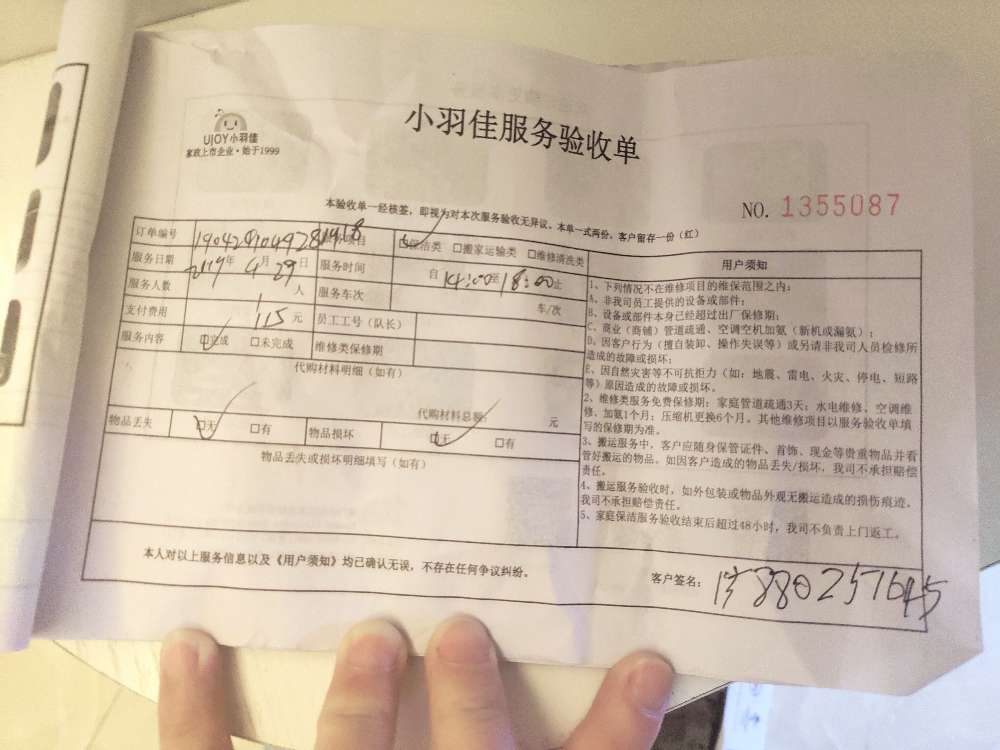 UJOY小羽佳
家政上市企业·始于1999
小羽佳服务验收单
NO. 1355087
本验收单一经核签，即视为对本次服务验收无异议。本单一式两份，客户留存一份（红）
订单编号 服务项目 保洁类 □搬家运输类 □维修清洗类
服务日期 2019年 4月29日 服务时间 自 14:00至18:00止
服务人数 人 服务车次 车/次
支付费用 115元 员工工号（队长）
服务内容 □完成 □未完成 维修类保修期
代购材料明细（如有）
代购材料总额： 元
物品丢失 □无 □有 物品损坏 □无 □有
物品丢失或损坏明细填写（如有）
用户须知
1、下列情况不在维修项目的维保范围之内：
A、非我司员工提供的设备或部件；
B、设备或部件本身已经超过出厂保修期；
C、商业（商铺）管道疏通、空调空机加氨（新机或漏氨）；
D、因客户行为（擅自装卸、操作失误等）或另请非我司人员检修所
造成的故障或损坏；
E、因自然灾害等不可抗拒力（如：地震、雷电、火灾、停电、短路
等）原因造成的故障或损坏。
2、维修类服务免费保修期：家庭管道疏通3天；水电维修、空调维
修、加氨1个月；压缩机更换6个月。其他维修项目以服务验收单填
写的保修期为准。
3、搬运服务中，客户应随身保管证件、首饰、现金等贵重物品并看
管好搬运的物品。如因客户造成的物品丢失/损坏，我司不承担赔偿
责任。
4、搬运服务验收时，如外包装或物品外观无搬运造成的损伤痕迹，
我司不承担赔偿责任。
5、家庭保洁服务验收结束后超过48小时，我司不负责上门返工。
本人对以上服务信息以及《用户须知》均已确认无误，不存在任何争议纠纷。
客户签名：